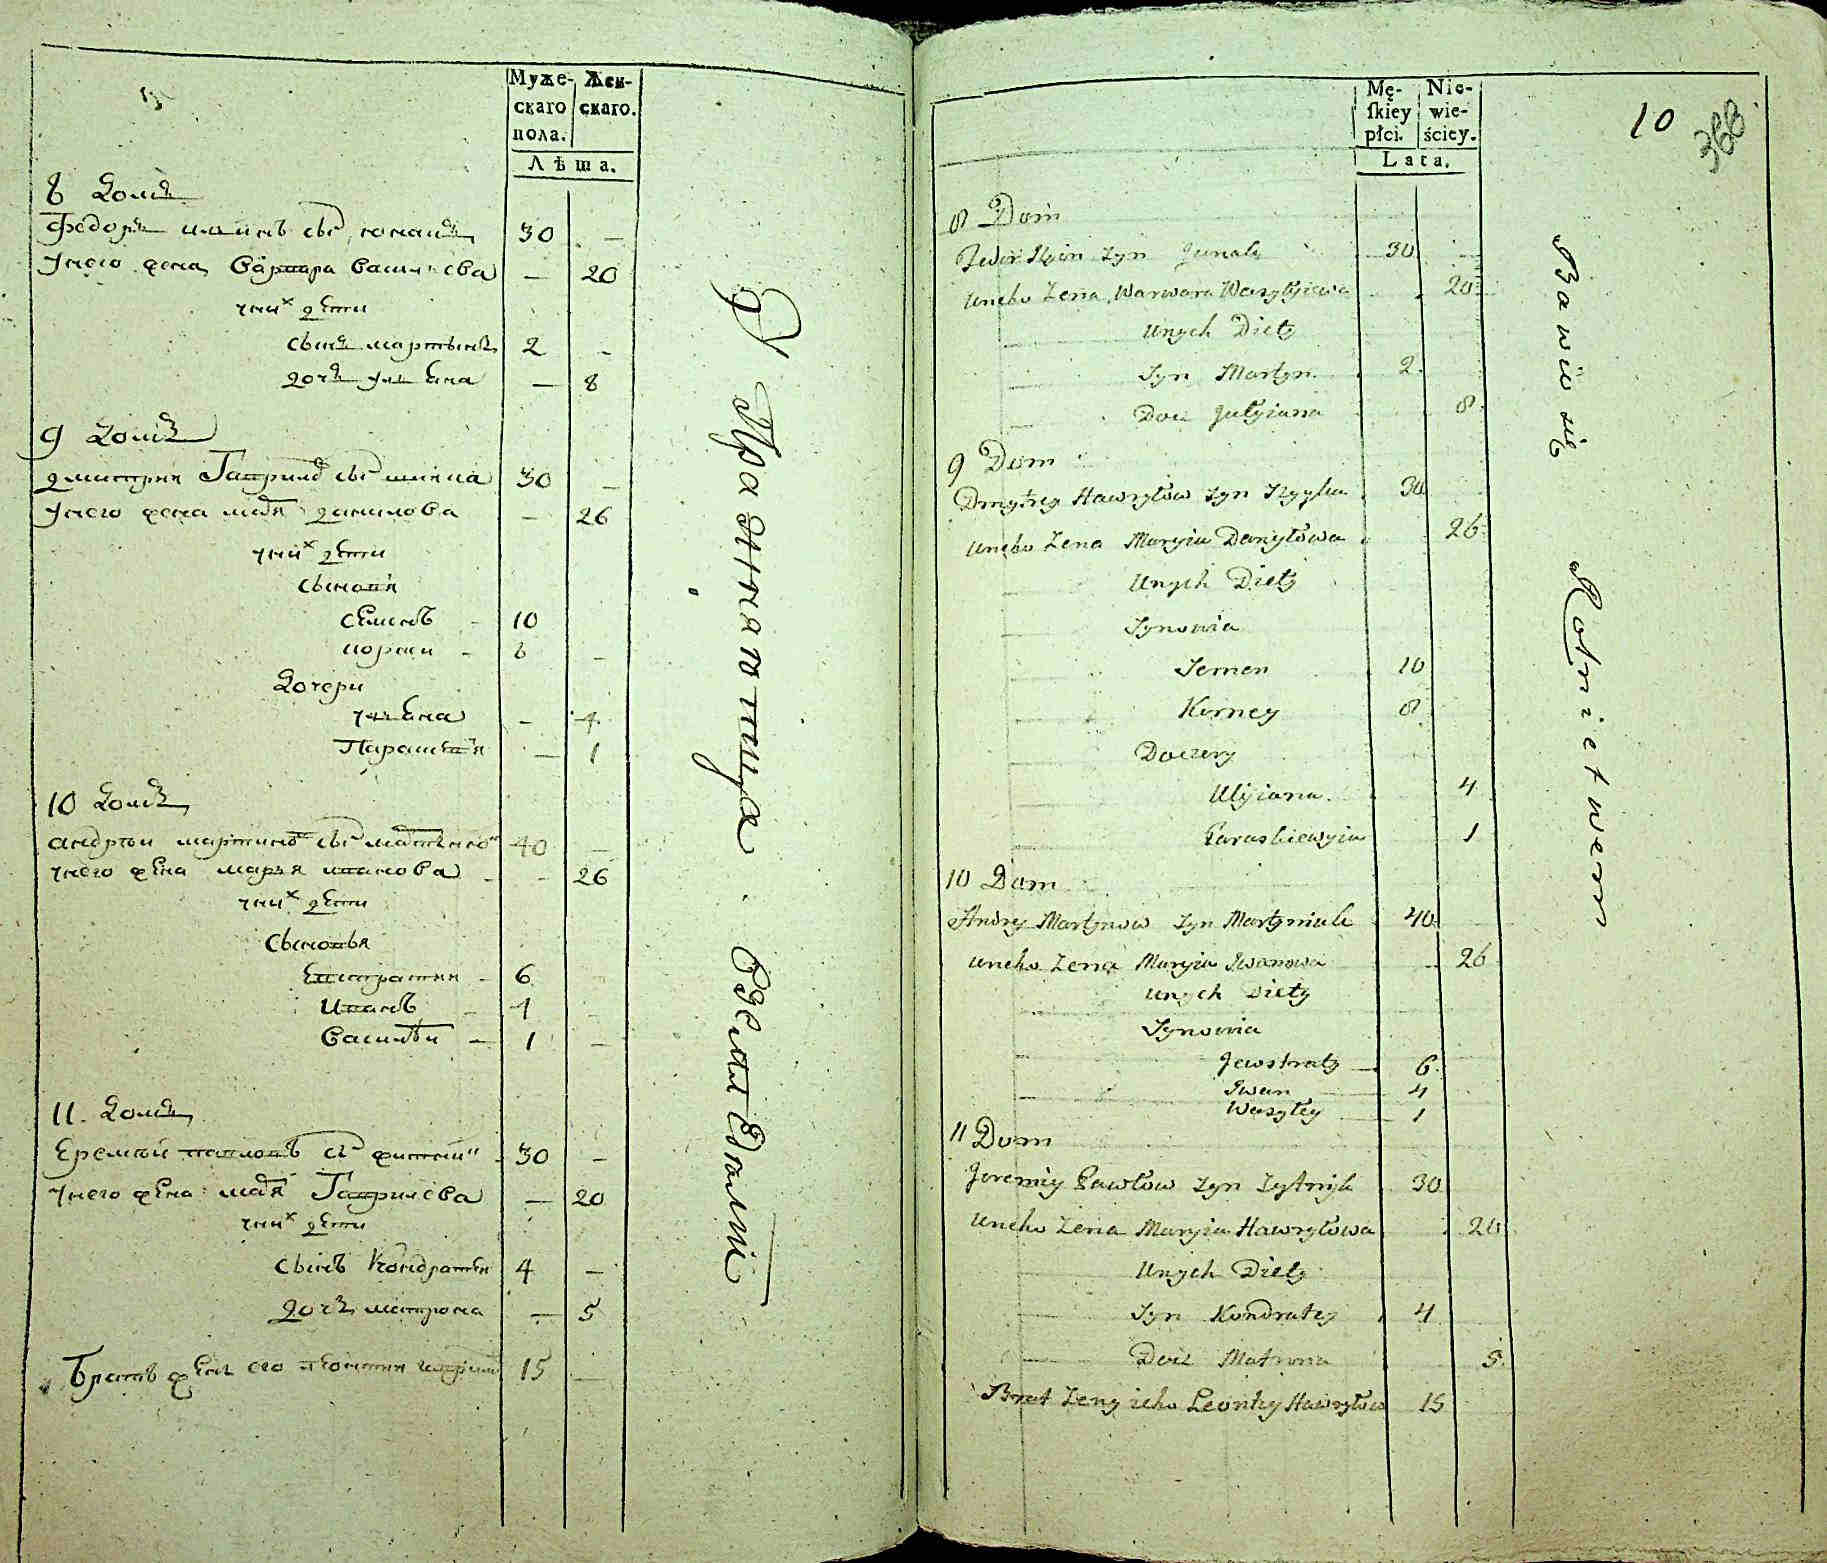 Муже-
скаго
пола.
Жен-
скаго.
Лѣта.
8 Домъ
Федоръ сынъ 30 —
у него жена Варвара Василиева — 20
у них дети
сынъ мартынъ 2 —
дочъ улиана — 8
9 Домъ
дмитрия Гаврилов сынъ 30 —
у него жена данилова — 26
у них дети
сыновя
Семенъ — 10
корнеи — 8 —
Дочери
улиана — 4
Парасковия — 1
10 Домъ
андреи мартинов сынъ 40 —
у него жена мария иванова — — 26
у них дети
Сыновья
Евстратии — 6
Иванъ — 4
Василѣи — 1 —
11 Домъ
Еремѣи павловъ 30 —
у него жена Гаврилева — 20
у них дети
сынъ Кондратия 4 —
дочъ матрона — 5
Братъ жены его леонтия 15 —
Упражняются в земледѣлии
Mę-
ſkiey
płci.
Nie-
wie-
ściey.
Lata.
10
366
8 Dom
Syn Junak 30
uneho Żena Warwara Wasylijewa 20
Unych Diety
Syn Martyn 2
Docz Julyiana 8
9 Dom
Dmytrey Hawryłow Syn 30
uneho Żena Maryia Danyłowa 26
Unych Diety
Synowia
Semen 10
Korney 8
Doczery
Ulyiana 4
Paraskiewyia 1
10 Dom
Andrey Martynow Syn Martyniuk 40
uneho Żena Maryia Iwanowa 26
Unych Diety
Synowia
Jewstraty 6
Iwan 4
Wasyley 1
11 Dom
Jeremiy Pawłow Syn Żytnyk 30
Uneho Żena Maryia Hawryłowa 20
Unych Diety
Syn Kondratey 4
Docz Matrona 5
Brat Żeny ieho Leontey Hawryłow 15
Bawią się Rolnictwem